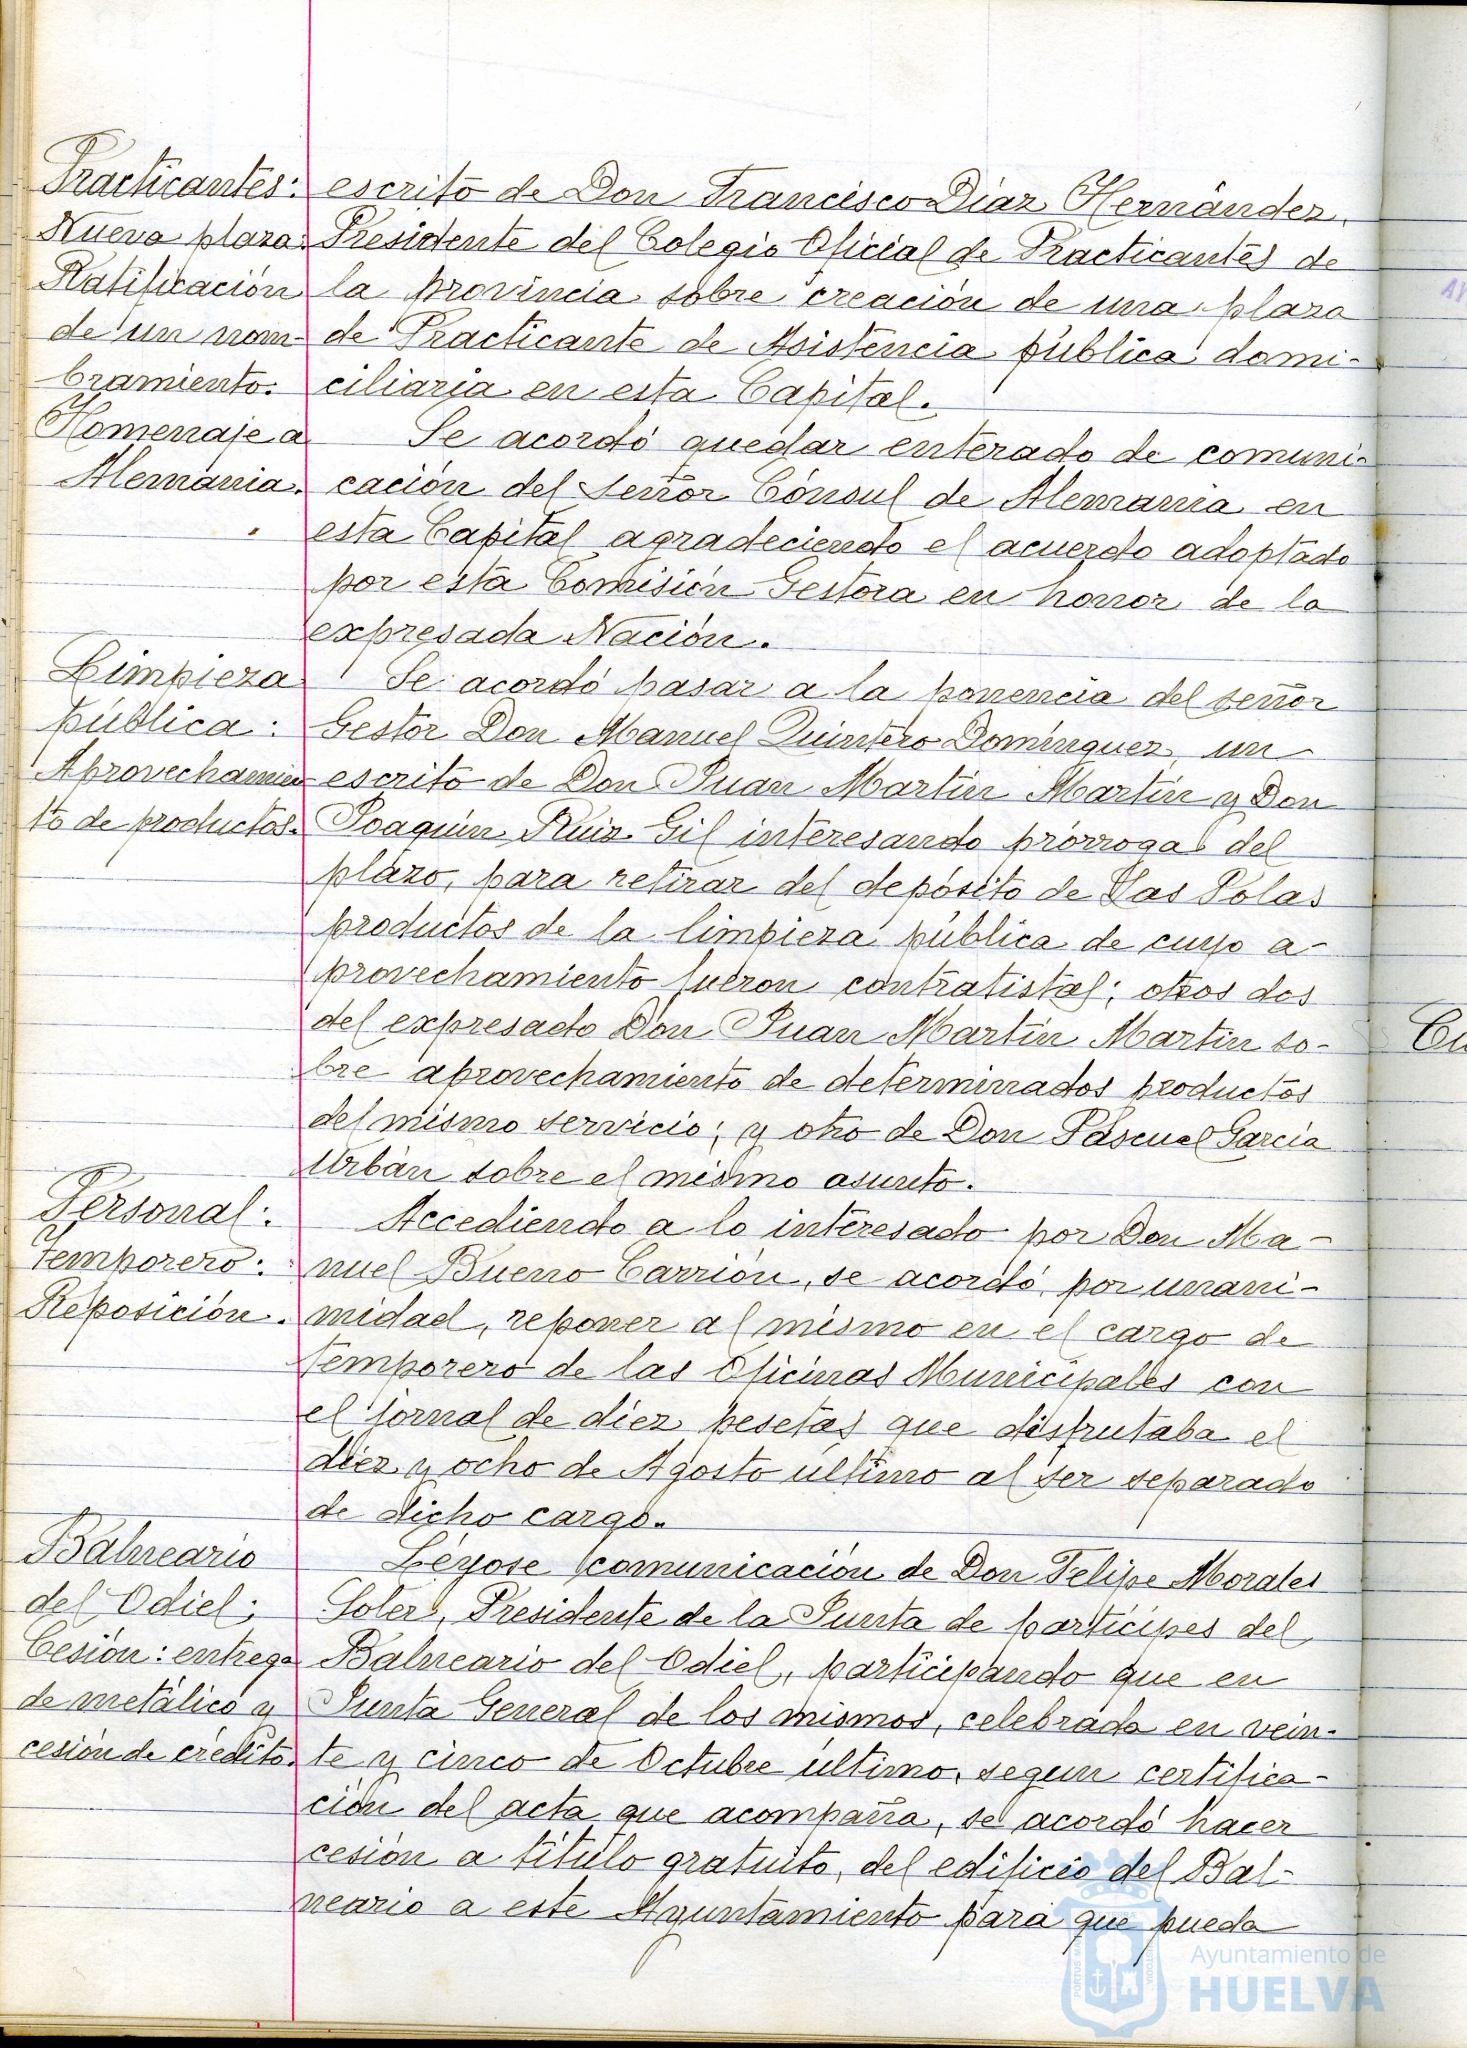 Practicantes:
Nueva plaza.
Ratificación
de un nom-
bramiento.
Homenaje a
Alemania.
escrito de Don Francisco Díaz Hernández,
Presidente del Colegio Oficial de Practicantes de
la provincia sobre creación de una plaza
de Practicante de Asistencia pública domi-
ciliaria en esta Capital.
Se acordó quedar enterado de comuni-
cación del señor Cónsul de Alemania en
esta Capital agradeciendo el acuerdo adoptado
por esta Comisión Gestora en honor de la
expresada Nación.
Limpieza
pública:
Aprovechamien
to de productos.
Se acordó pasar a la ponencia del señor
Gestor Don Manuel Quintero Domínguez, un
escrito de Don Juan Martín Martín y Don
Joaquín Ruiz Gil interesando prórroga del
plazo, para retirar del depósito de Las Polas
productos de la limpieza pública de cuyo a-
provechamiento fueron contratistas; otros dos
del expresado Don Juan Martín Martín so-
bre aprovechamiento de determinados productos
del mismo servicio; y otro de Don Pascual García
Urbán sobre el mismo asunto.
Personal:
Temporero:
Reposición.
Accediendo a lo interesado por Don Ma-
nuel Bueno Carrión, se acordó, por unani-
midad, reponer al mismo en el cargo de
temporero de las Oficinas Municipales con
el jornal de diez pesetas que disfrutaba el
diez y ocho de Agosto último al ser separado
de dicho cargo.
Balneario
del Odiel;
Cesión: entrega
de metálico y
cesión de crédito.
Léyose comunicación de Don Felipe Morales
Soler, Presidente de la Junta de partícipes del
Balneario del Odiel, participando que en
Junta General de los mismos, celebrada en vein-
te y cinco de Octubre último, segun certifica-
ción del acta que acompaña, se acordó hacer
cesión a título gratuito, del edificio del Bal-
neario a este Ayuntamiento para que pueda
Cu
Ayuntamiento de
HUELVA